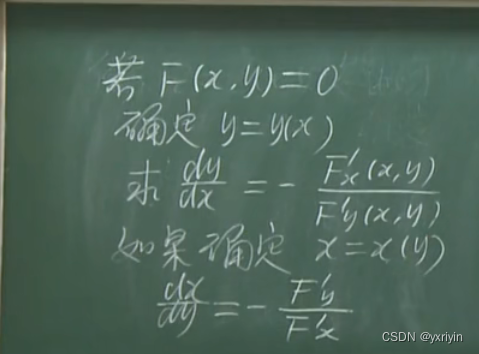 若 F(x,y)=0
确定 y=y(x)
求 dy/dx = - F'x(x,y)/F'y(x,y)
如果确定 x=x(y)
dx/dy = - F'y/F'x
CSDN @yxriyin